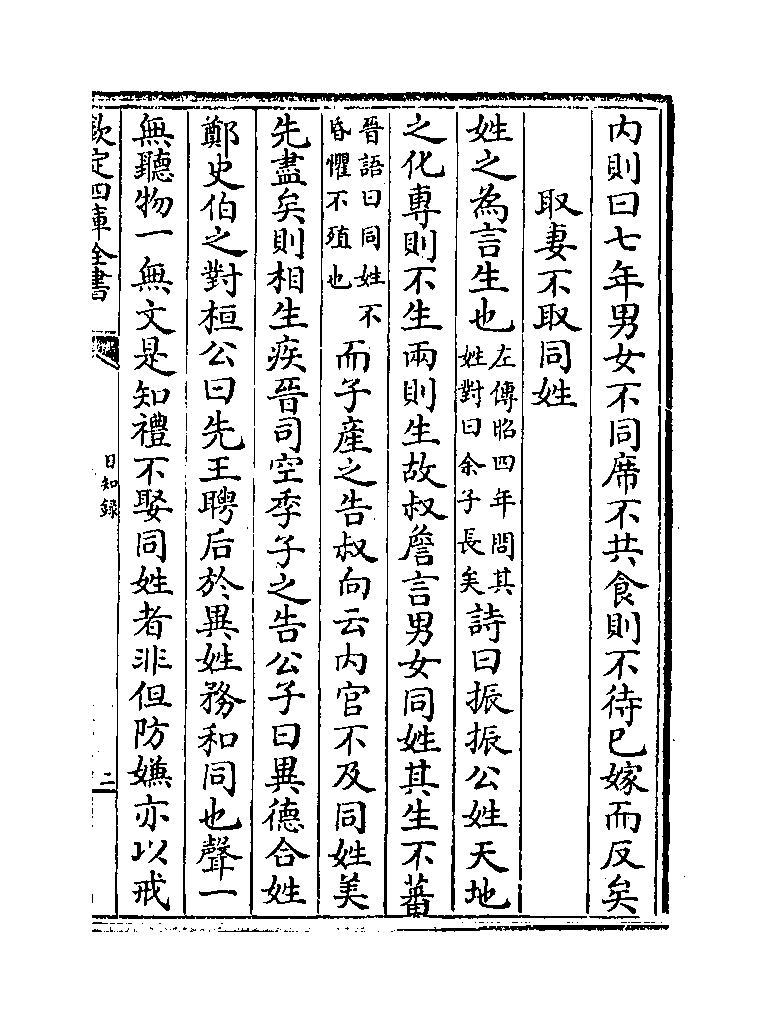 内則曰七年男女不同席不共食則不待已嫁而反矣
取妻不取同姓
姓之為言生也左傳昭四年問其姓對曰余子長矣詩曰振振公姓天地
之化專則不生兩則生故叔詹言男女同姓其生不蕃
晉語曰同姓不昏懼不殖也而子產之告叔向云内官不及同姓美
先盡矣則相生疾晉司空季子之告公子曰異德合姓
鄭史伯之對桓公曰先王聘后於異姓務和同也聲一
無聽物一無文是知禮不娶同姓者非但防嫌亦以戒
欽定四庫全書
日知錄
二